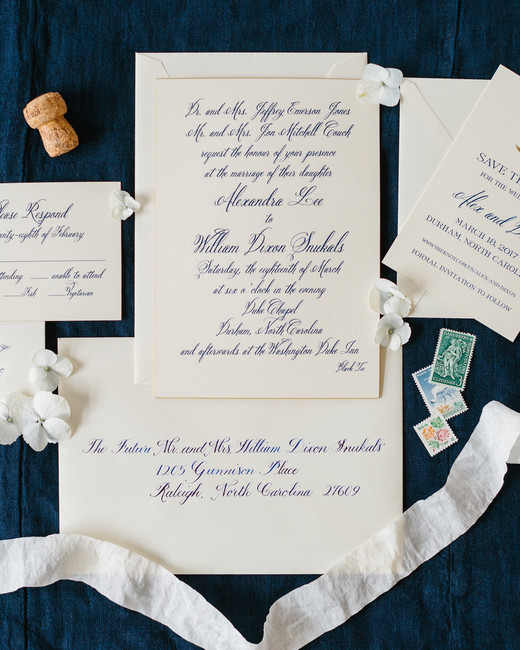 Dr. and Mrs. Jeffrey Emerson Jones
Mr. and Mrs. Jon Mitchell Couch
request the honour of your presence
at the marriage of their daughter
Alexandra Lee
to
William Dixon Snukals
Saturday, the eighteenth of March
at six o'clock in the evening
Duke Chapel
Durham, North Carolina
and afterwards at the Washington Duke Inn
Black Tie
Please Respond
twenty-eighth of February
attending unable to attend
Fish Vegetarian
SAVE THE
FOR THE WE
Alex and D
MARCH 18, 2017
DURHAM, NORTH CAROLI
FORMAL INVITATION TO FOLLOW
The Future Mr. and Mrs. William Dixon Snukals
1205 Gunnison Place
Raleigh, North Carolina 27609